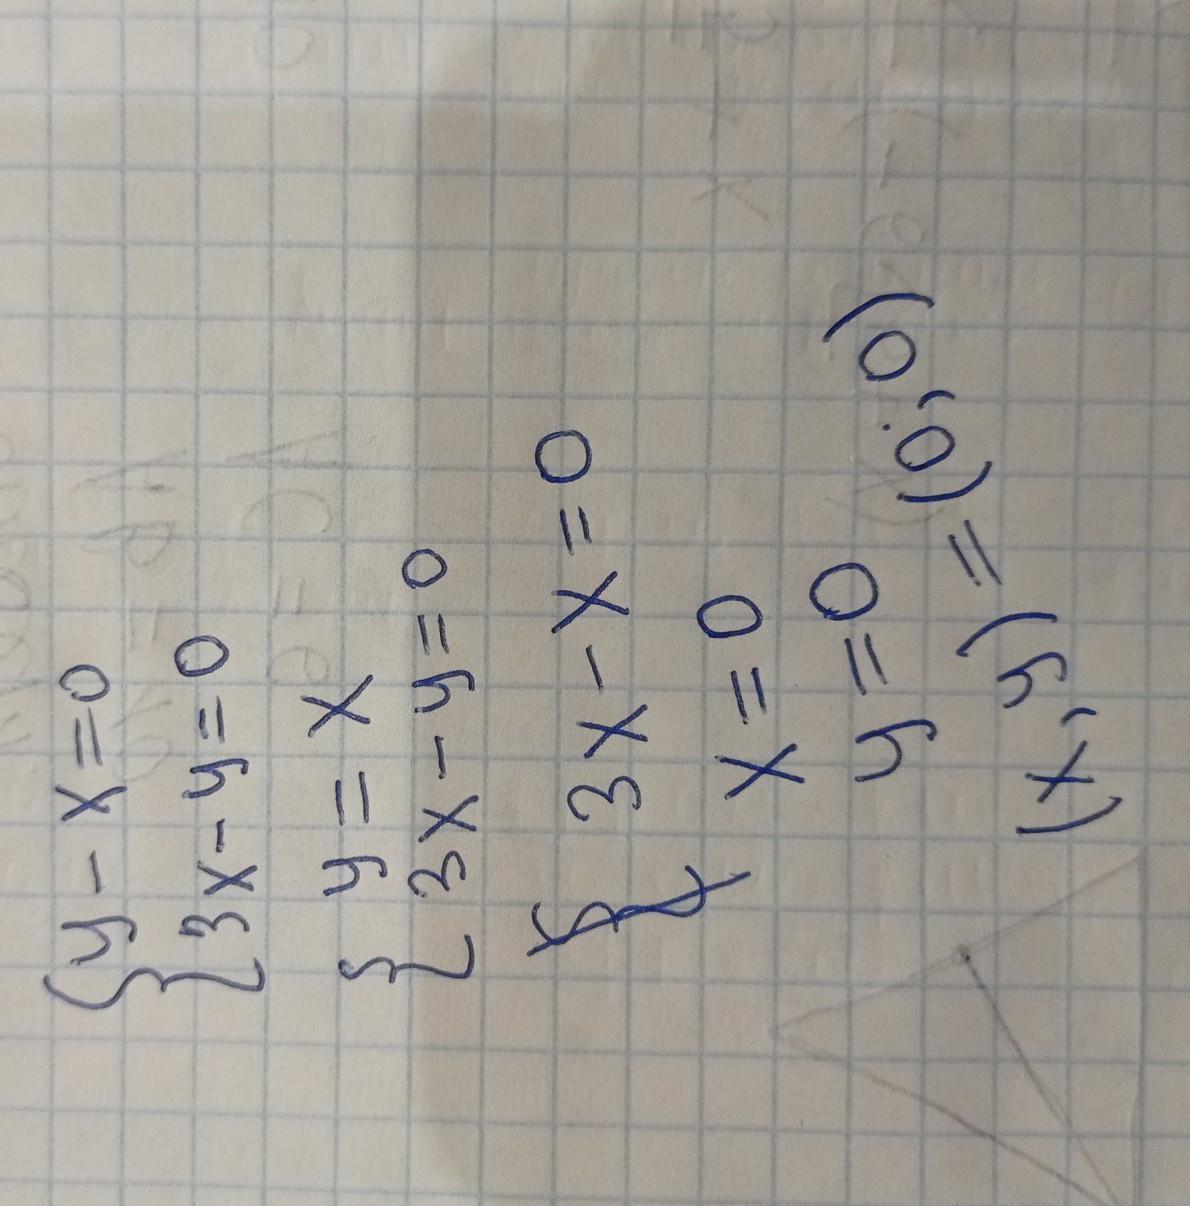 y - x = 0
3x - y = 0
y = x
3x - y = 0
3x - x = 0
x = 0
y = 0
(x, y) = (0, 0)